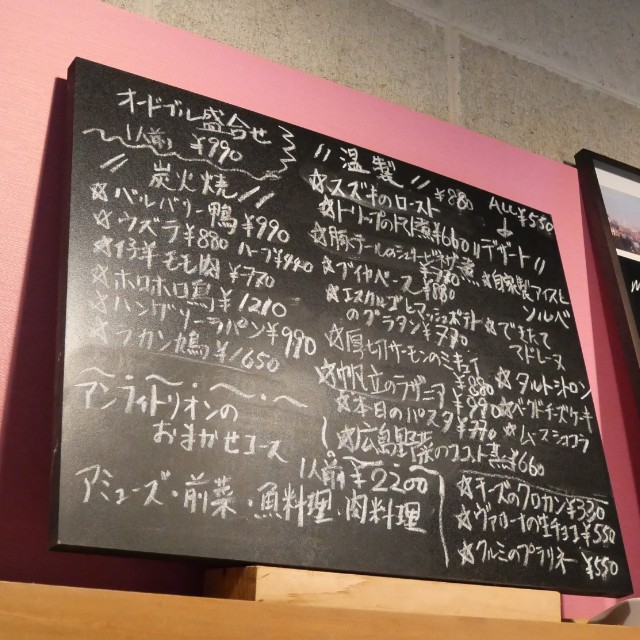 オードブル盛合せ
1人前 ¥990
炭火焼
☆バルバリー鴨¥990
☆ウズラ¥880 ハーフ¥440
☆仔羊モモ肉¥770
☆ホロホロ鳥¥1210
☆ハンガリーラパン¥990
☆フカン鳩¥1650
アンフィトリオンの
おまかせコース
1人前¥2200
アミューズ・前菜・魚料理・肉料理
温製
☆スズキのロースト ¥880
☆トリップのトマト煮¥660
☆豚テールのシェリービネガー煮 ¥780
☆ブイヤベース ¥880
☆エスカルゴとマッシュポテト
のグラタン¥770
☆厚切サーモンのミキュイ
¥880
☆帆立のラザニア ¥990
☆本日のパスタ ¥770
☆広島野菜のココット煮¥660
ALL¥550
デザート
☆自家製アイスと
ソルベ
☆できたて
マドレーヌ
☆タルトシトロン
☆ベイクドチーズケーキ
☆ムースショコラ
☆チーズのフロカン¥330
☆ヴァローナの生チョコ¥550
☆クルミのプラリネー ¥550